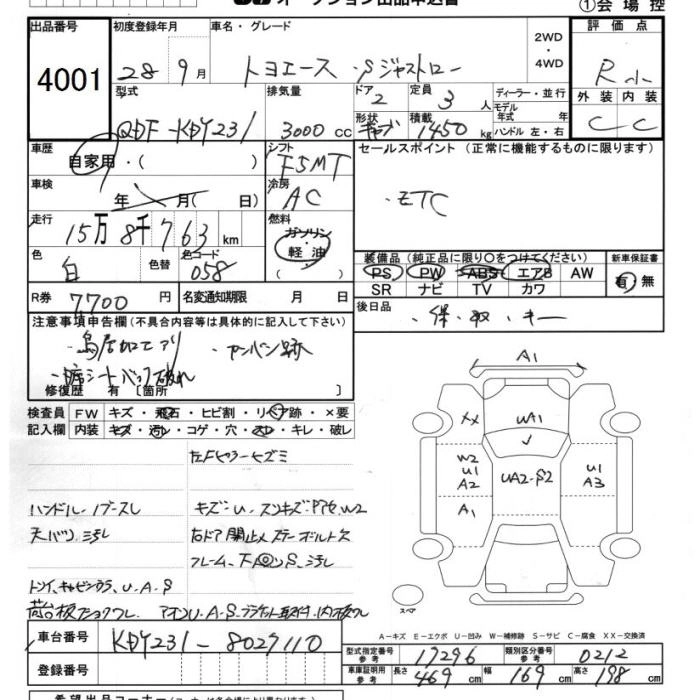 オークション出品申込書
①会場控
出品番号 初度登録年月 車名・グレード 評価点
4001 28年9月 トヨエース・Sジャストロー 2WD・4WD R小
型式 排気量 ドア 定員 ディーラー・並行 外装 内装
QDF-KDY231 3000cc 2 3人 モデル年式 年式 C C
形状 積載 ハンドル 左・右
1450kg
車歴 シフト セールスポイント(正常に機能するものに限ります)
自家用・( ) F5MT
車検 冷房 ・ETC
年 月( 日) AC
走行 燃料
15万8千763km ガソリン・軽油
色 色替 色コード 装備品(純正品に限り〇をつけてください) 新車保証書
白 058 PS PW ABS エアB AW 有・無
SR ナビ TV カワ
R券 7700円 名変通知期限 月 日 後日品
・保・取・キー
注意事項申告欄(不具合内容等は具体的に記入して下さい)
・鳥居加工アリ ・カンバン跡
修復歴 有〔箇所 〕
検査員 FW キズ・飛石・ヒビ割・リペア跡・×要
記入欄 内装 キズ・汚レ・コゲ・穴・スレ・キレ・破レ
左Fピラーキズミ
ハンドル・ノブスレ
天バリ汚レ
右ドア開止メステーボルト欠
A1
XX UA1
W2
U1
A2
UA2・S2
U1
A3
A1
スペア
A-キズ E-エクボ U-凹み W-補修跡 S-サビ C-腐食 XX-交換済
車台番号 KDY231-8027110
登録番号
型式指定番号 参考 17296 類別区分番号 参考 0212
車庫証明用 参考 長さ 469cm 幅 169cm 高さ 198cm
希望出品コーナー